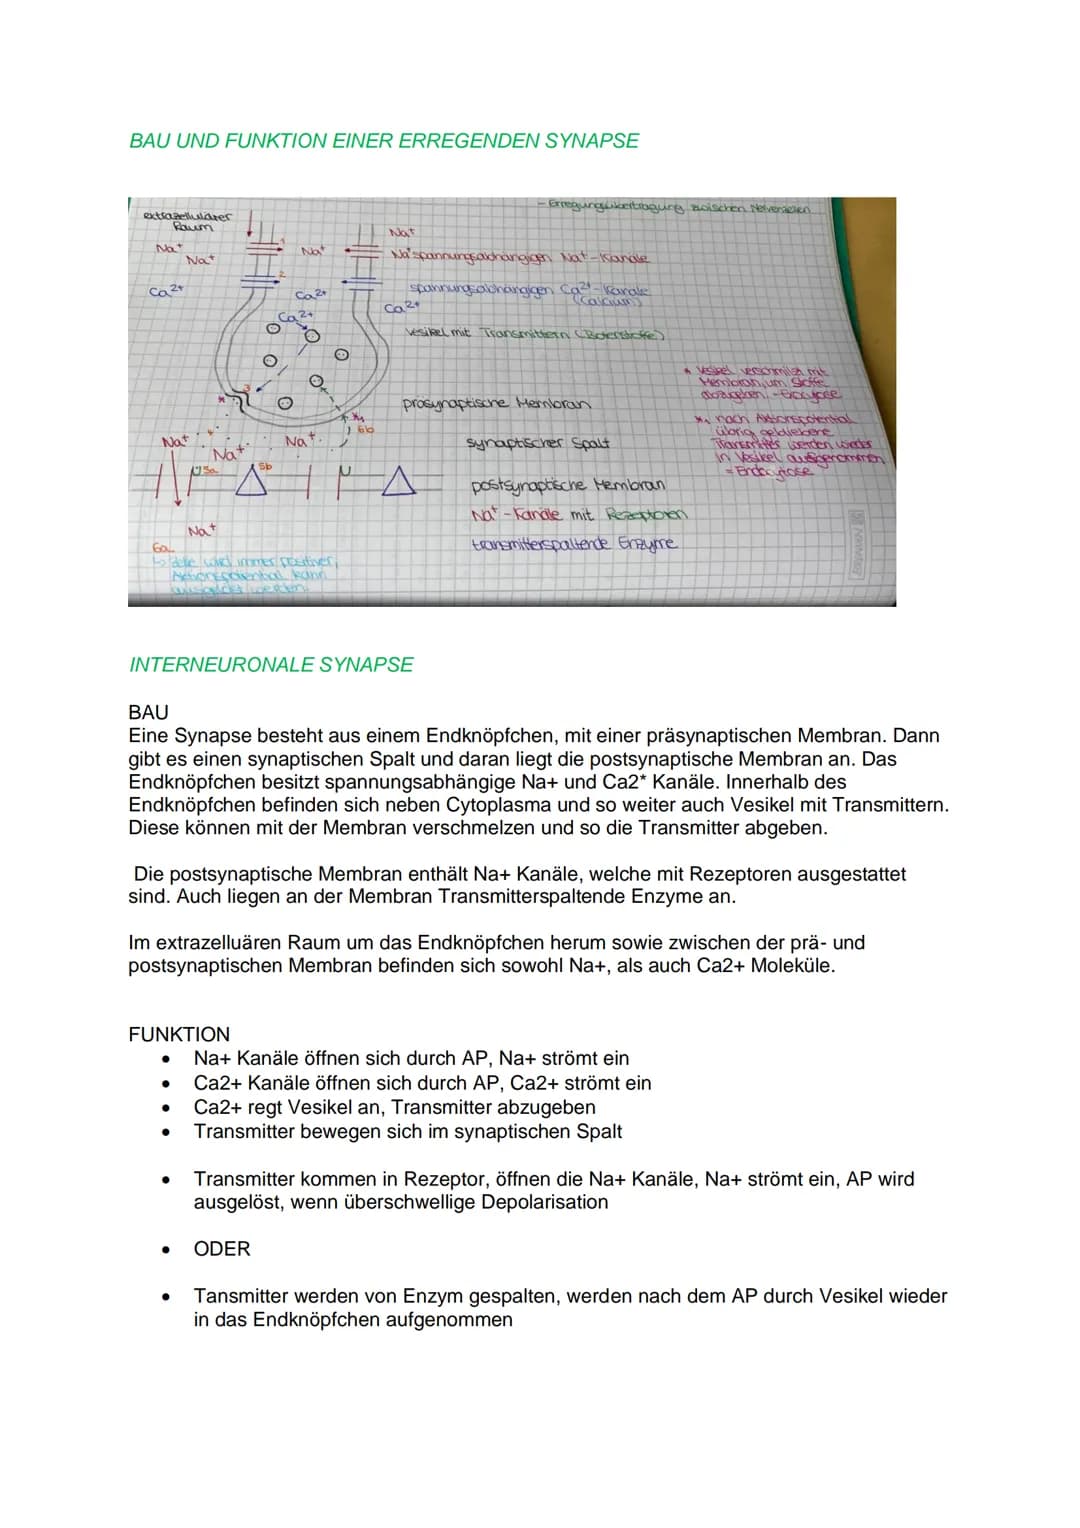 BAU UND FUNKTION EINER ERREGENDEN SYNAPSE
- Erregungsübertragung zwischen Nervenzellen
extrazellulärer
Raum
Na+
Na+
Na+
Na+
Na+ spannungsabhängigen Na+-Kanäle
1
2
Ca2+
Ca2+
Ca2+
Ca2+
spannungsabhängigen Ca2+-Kanäle
(Calcium)
Vesikel mit Transmittern (Botenstoffe)
* Vesikel verschmilzt mit
Membran, um Stoffe
abzugeben. - Exocytose
3
präsynaptische Membran
*1 nach Aktionspotential
übrig gebliebene
Transmitter werden wieder
in Vesikel aufgenommen
= Endocytose
*
*1
6b
4
Na+
Na+
Na+
synaptischer Spalt
5a
5b
postsynaptische Membran
Na+-Kanäle mit Rezeptoren
Na+
transmitterspaltende Enzyme
6a
Zelle wird immer positiver,
Aktionspotential kann
ausgelöst werden
INTERNEURONALE SYNAPSE
BAU
Eine Synapse besteht aus einem Endknöpfchen, mit einer präsynaptischen Membran. Dann
gibt es einen synaptischen Spalt und daran liegt die postsynaptische Membran an. Das
Endknöpfchen besitzt spannungsabhängige Na+ und Ca2* Kanäle. Innerhalb des
Endknöpfchen befinden sich neben Cytoplasma und so weiter auch Vesikel mit Transmittern.
Diese können mit der Membran verschmelzen und so die Transmitter abgeben.
Die postsynaptische Membran enthält Na+ Kanäle, welche mit Rezeptoren ausgestattet
sind. Auch liegen an der Membran Transmitterspaltende Enzyme an.
Im extrazelluären Raum um das Endknöpfchen herum sowie zwischen der prä- und
postsynaptischen Membran befinden sich sowohl Na+, als auch Ca2+ Moleküle.
FUNKTION
• Na+ Kanäle öffnen sich durch AP, Na+ strömt ein
• Ca2+ Kanäle öffnen sich durch AP, Ca2+ strömt ein
• Ca2+ regt Vesikel an, Transmitter abzugeben
• Transmitter bewegen sich im synaptischen Spalt
• Transmitter kommen in Rezeptor, öffnen die Na+ Kanäle, Na+ strömt ein, AP wird
ausgelöst, wenn überschwellige Depolarisation
• ODER
• Tansmitter werden von Enzym gespalten, werden nach dem AP durch Vesikel wieder
in das Endknöpfchen aufgenommen